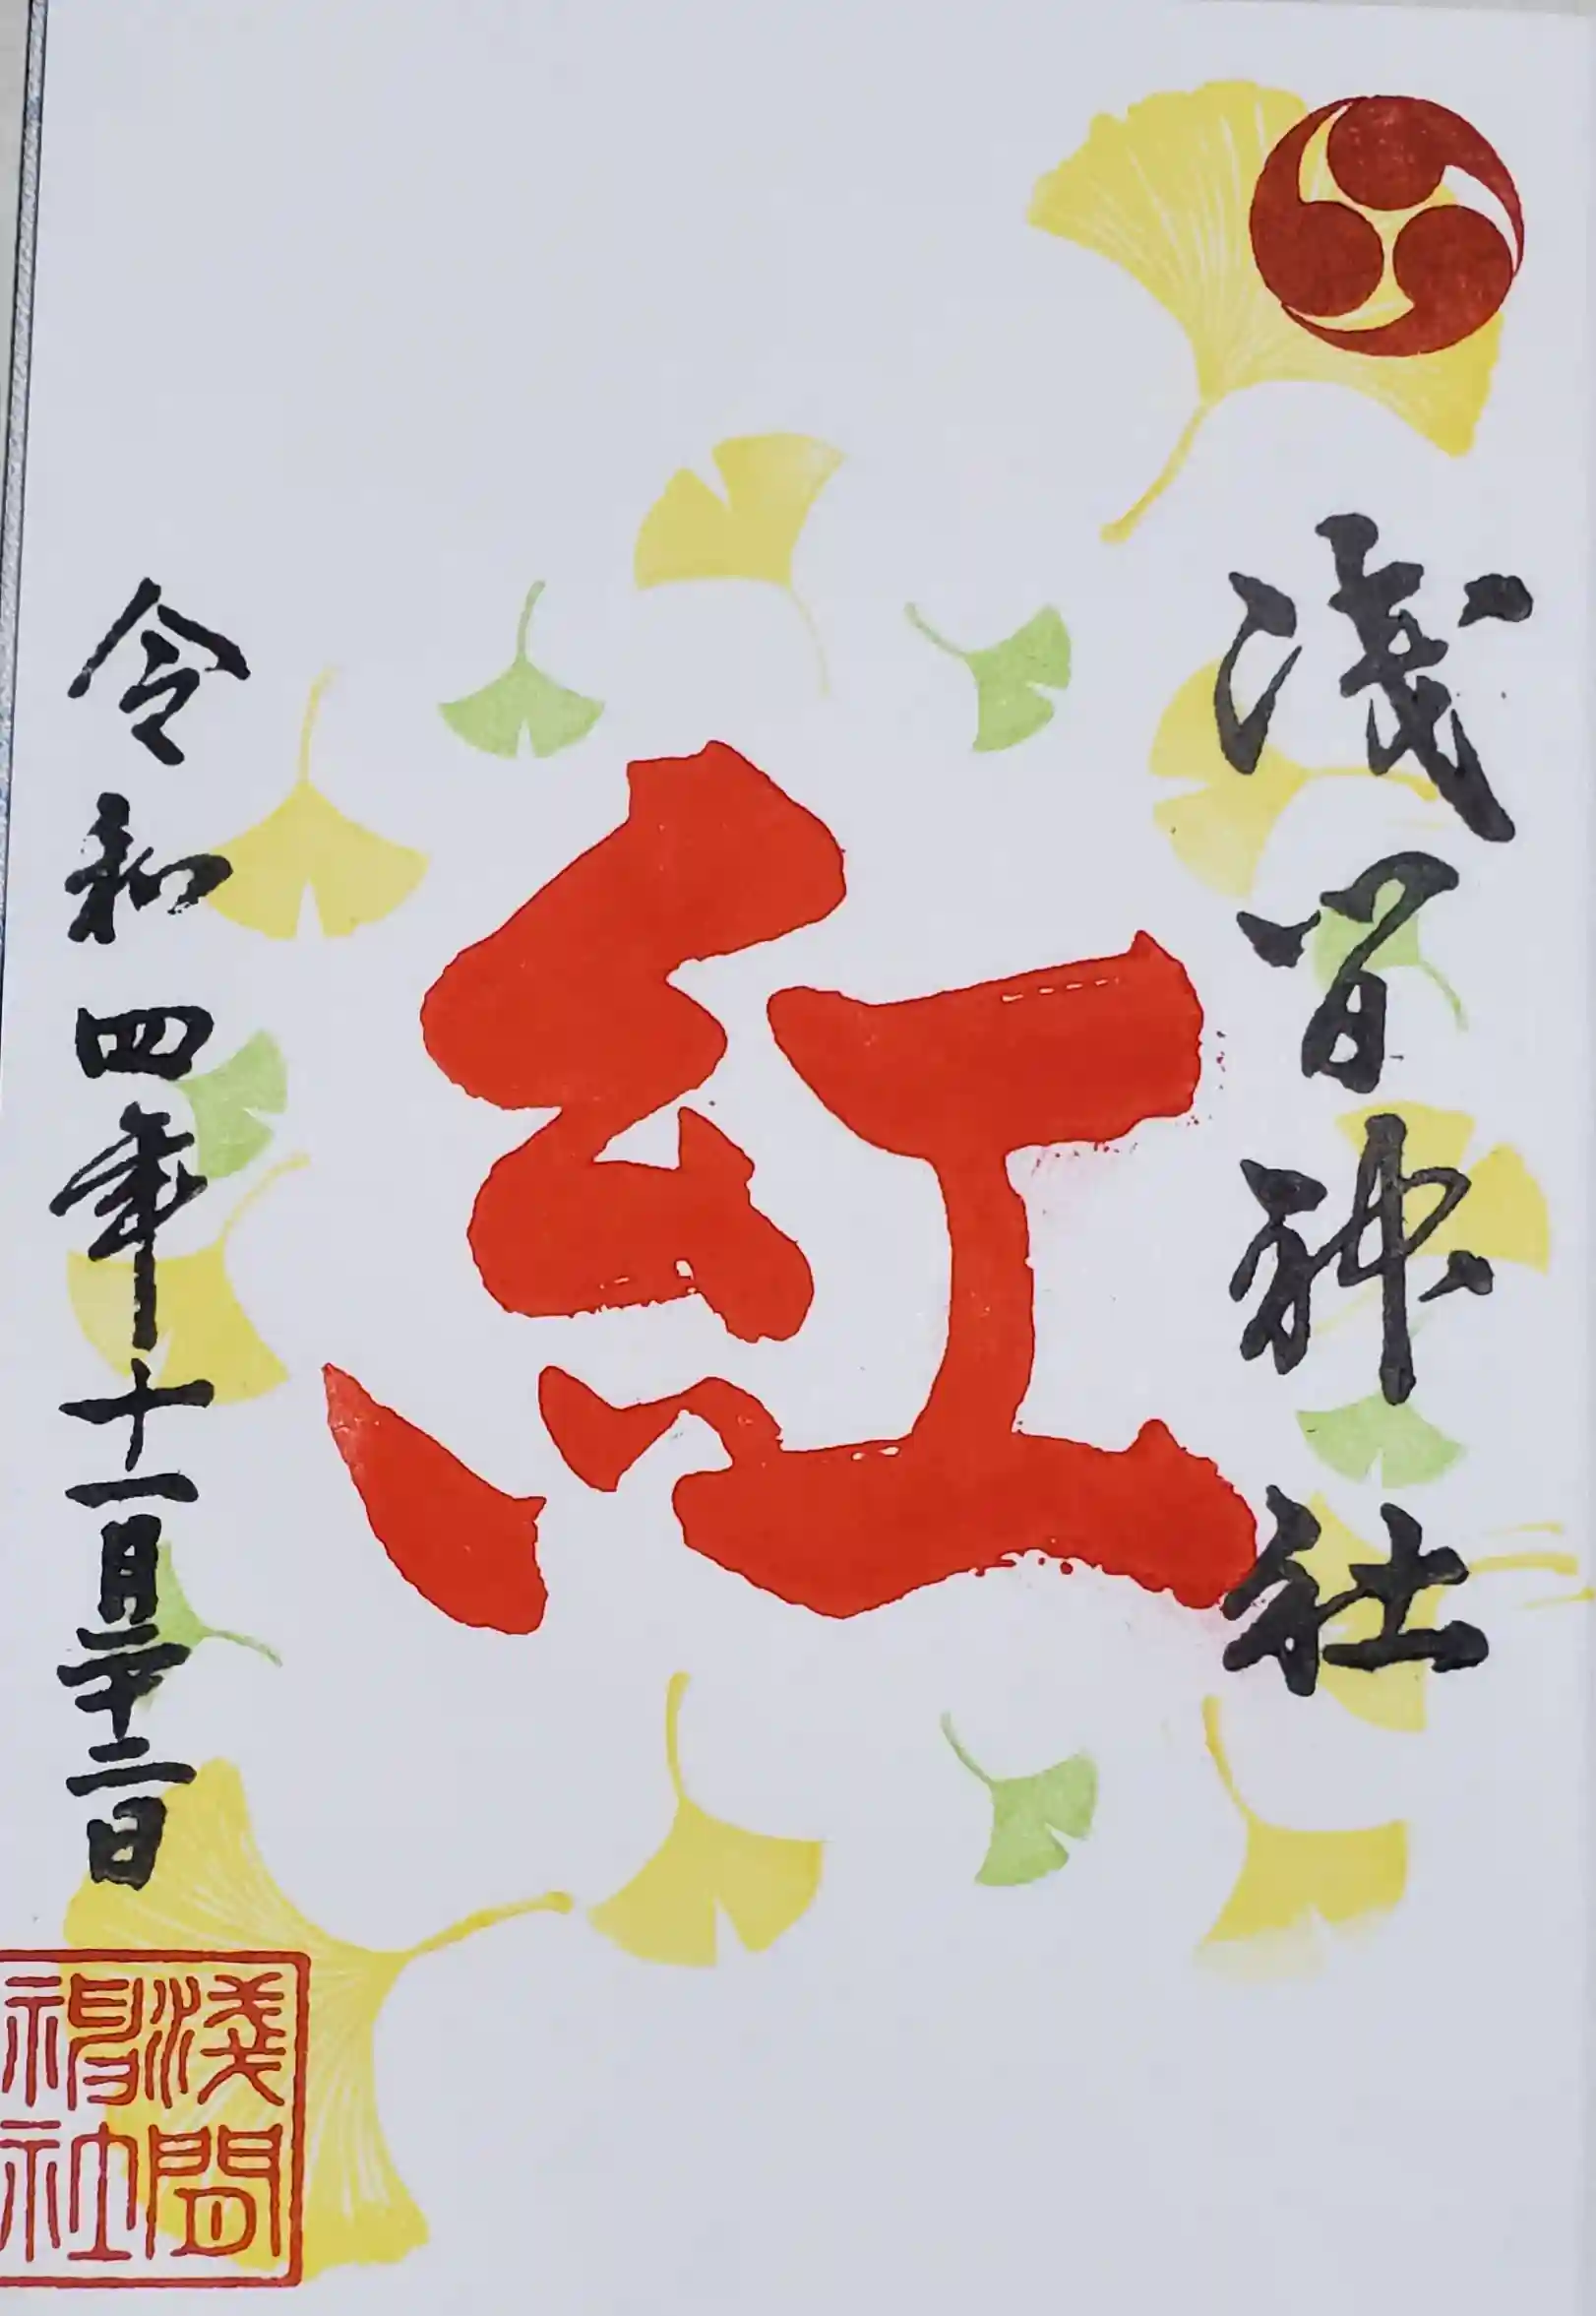 浅間神社
紅
令和四年十一月二十二日
淺間
神社